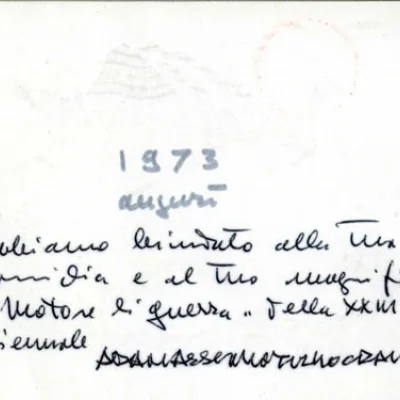 1973
auguri
bbiamo brindato alla tua
midia e al tuo magnif
Motore di guerra" della XXIII
iennale